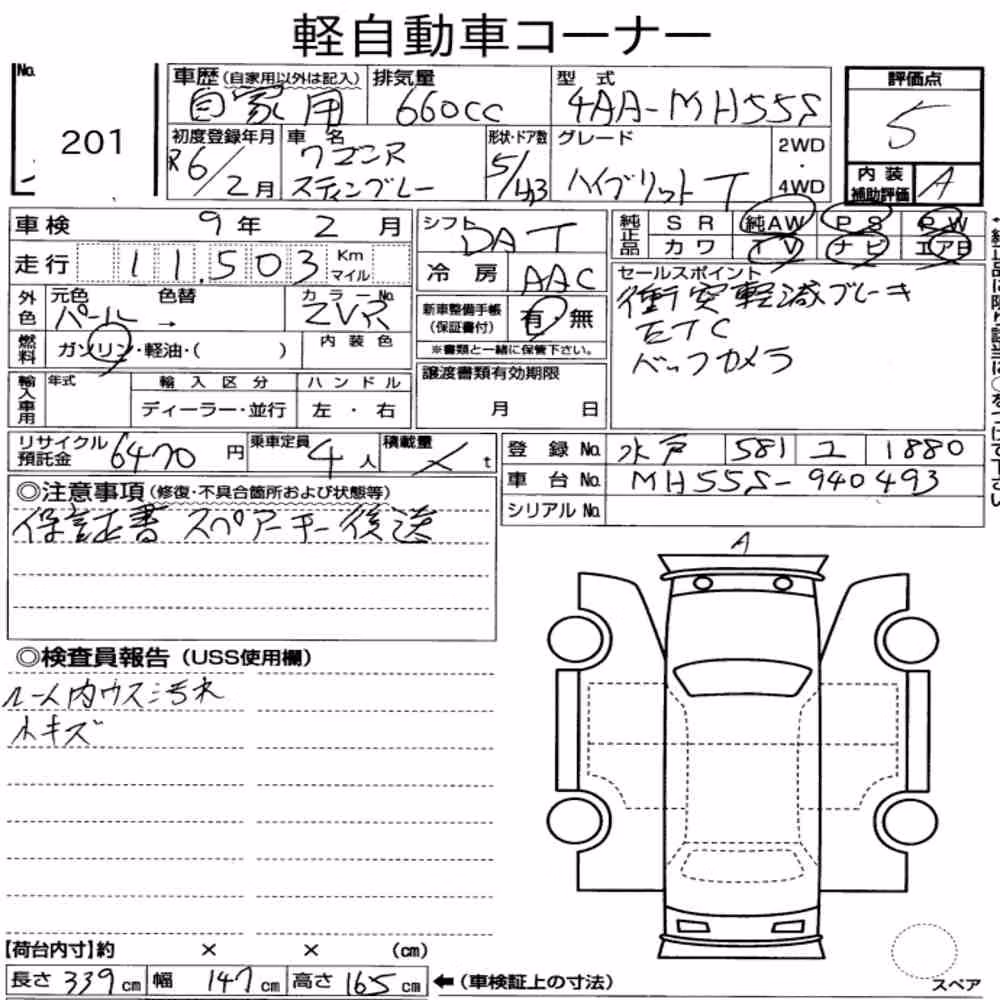 軽自動車コーナー
No.
201
車歴(自家用以外は記入)
自家用
排気量
660cc
型 式
4AA-MH55S
評価点
5
初度登録年月
R6/2月
車 名
ワゴンR
スティングレー
形状・ドア数
5/
グレード
ハイブリット T
2WD
・
4WD
内 装
補助評価
A
車検 9年 2月
走行 11,503 Km
マイル
シフト DAT
冷 房 AAC
純正品 S R 純AW P S P W
カ ワ T V ナ ビ エアB
外色
元色 色替
パール →
カラーNo.
ZVR
燃料
ガソリン・軽油・( )
内 装 色
新車整備手帳
(保証書付)
有・無
※書類と一緒に保管下さい。
セールスポイント
衝突軽減ブレーキ
ETC
バックカメラ
輸入車用
年式
輸 入 区 分
ハ ン ド ル
ディーラー・並行
左 ・ 右
譲渡書類有効期限
月 日
リサイクル
預託金
6470円
乗車定員
4人
積載量
t
登 録 No. 水戸 581 ユ 1880
車 台 No. MH55S-940493
シリアルNo.
◎注意事項(修復・不具合箇所および状態等)
保証書 スペアーキー後送
◎検査員報告(USS使用欄)
ルーム内ウス汚れ
小キズ
A
【荷台内寸】約 × × (cm)
長さ 339cm 幅 147cm 高さ 165cm ←(車検証上の寸法)
スペア